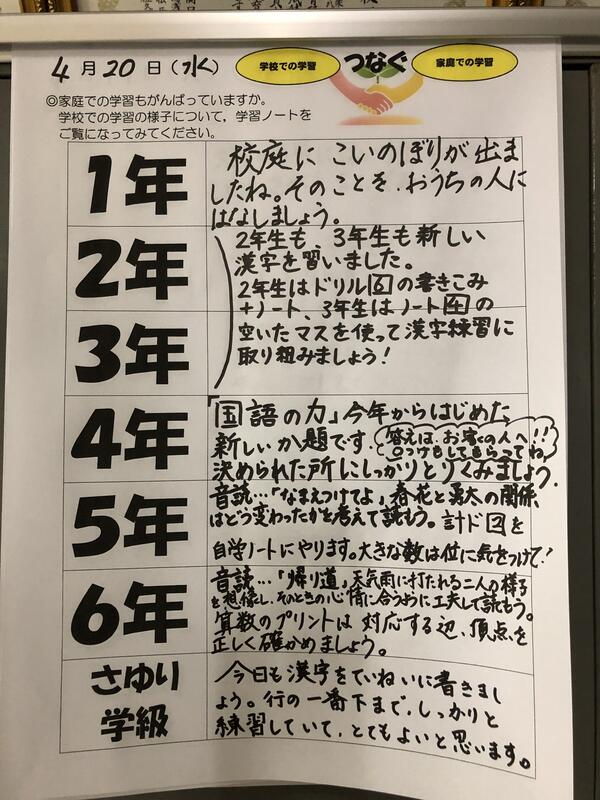 4月20日(水)
学校での学習 つなぐ 家庭での学習
◎家庭での学習もがんばっていますか。
学校での学習の様子について,学習ノートを
ご覧になってみてください。
1年
校庭に こいのぼりが 出ま
したね。そのことを、おうちの人に
はなしましょう。
2年
3年
2年生も、3年生も新しい
漢字を習いました。
2年生はドリル6の書きこみ
+ノート、3年生はノート4の
空いたマスを使って漢字練習に
取り組みましょう!
4年
「国語の力」今年からはじめた
新しいか題です。
答えは、お家の人へ!!
○つけをしてもらってね
決められた所にしっかりとりくみましょう.
5年
音読…「なまえつけてよ」春花と勇太の関係
はどう変わったかを考えて読もう。計ド2を
自学ノートにやります。大きな数は位に気をつけて!
6年
音読…「帰り道」天気雨に打たれる二人の様子
を想像し、そのときの心情に合うように工夫して読もう。
算数のプリントは 対応する辺、頂点を
正しく確かめましょう。
さゆり
学級
今日も漢字をていねいに書きまし
ょう。行の一番下まで、しっかりと
練習していて、とてもよいと思います。